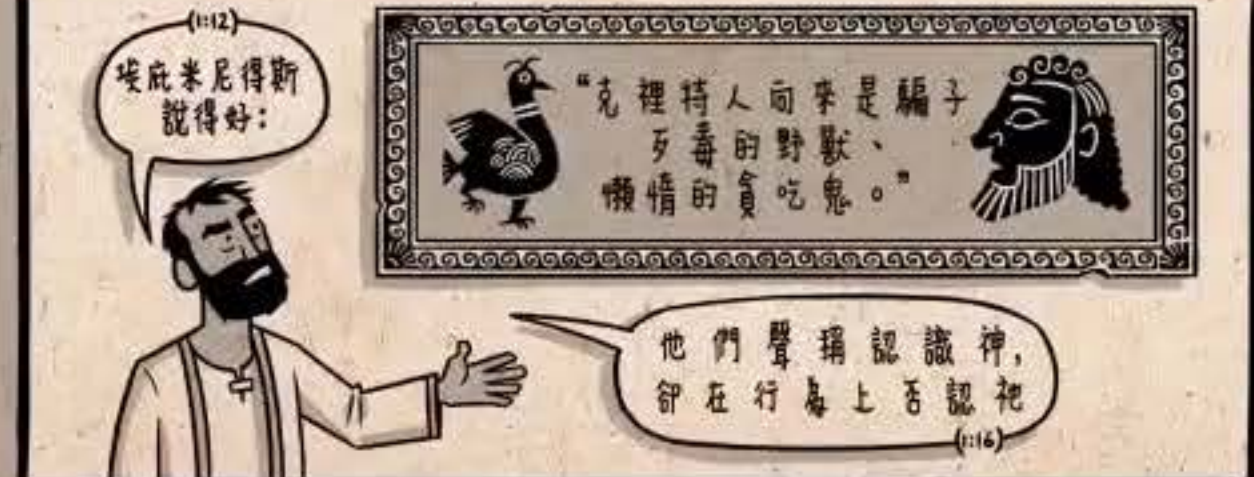 (1:12)
埃庇米尼得斯
說得好：
“克裡特人向來是騙子
歹毒的野獸、
懶惰的貪吃鬼。”
他們聲稱認識神,
卻在行為上否認祂
(1:16)